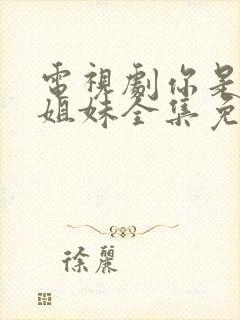 電視劇你是
姐妹全集免
徐麗